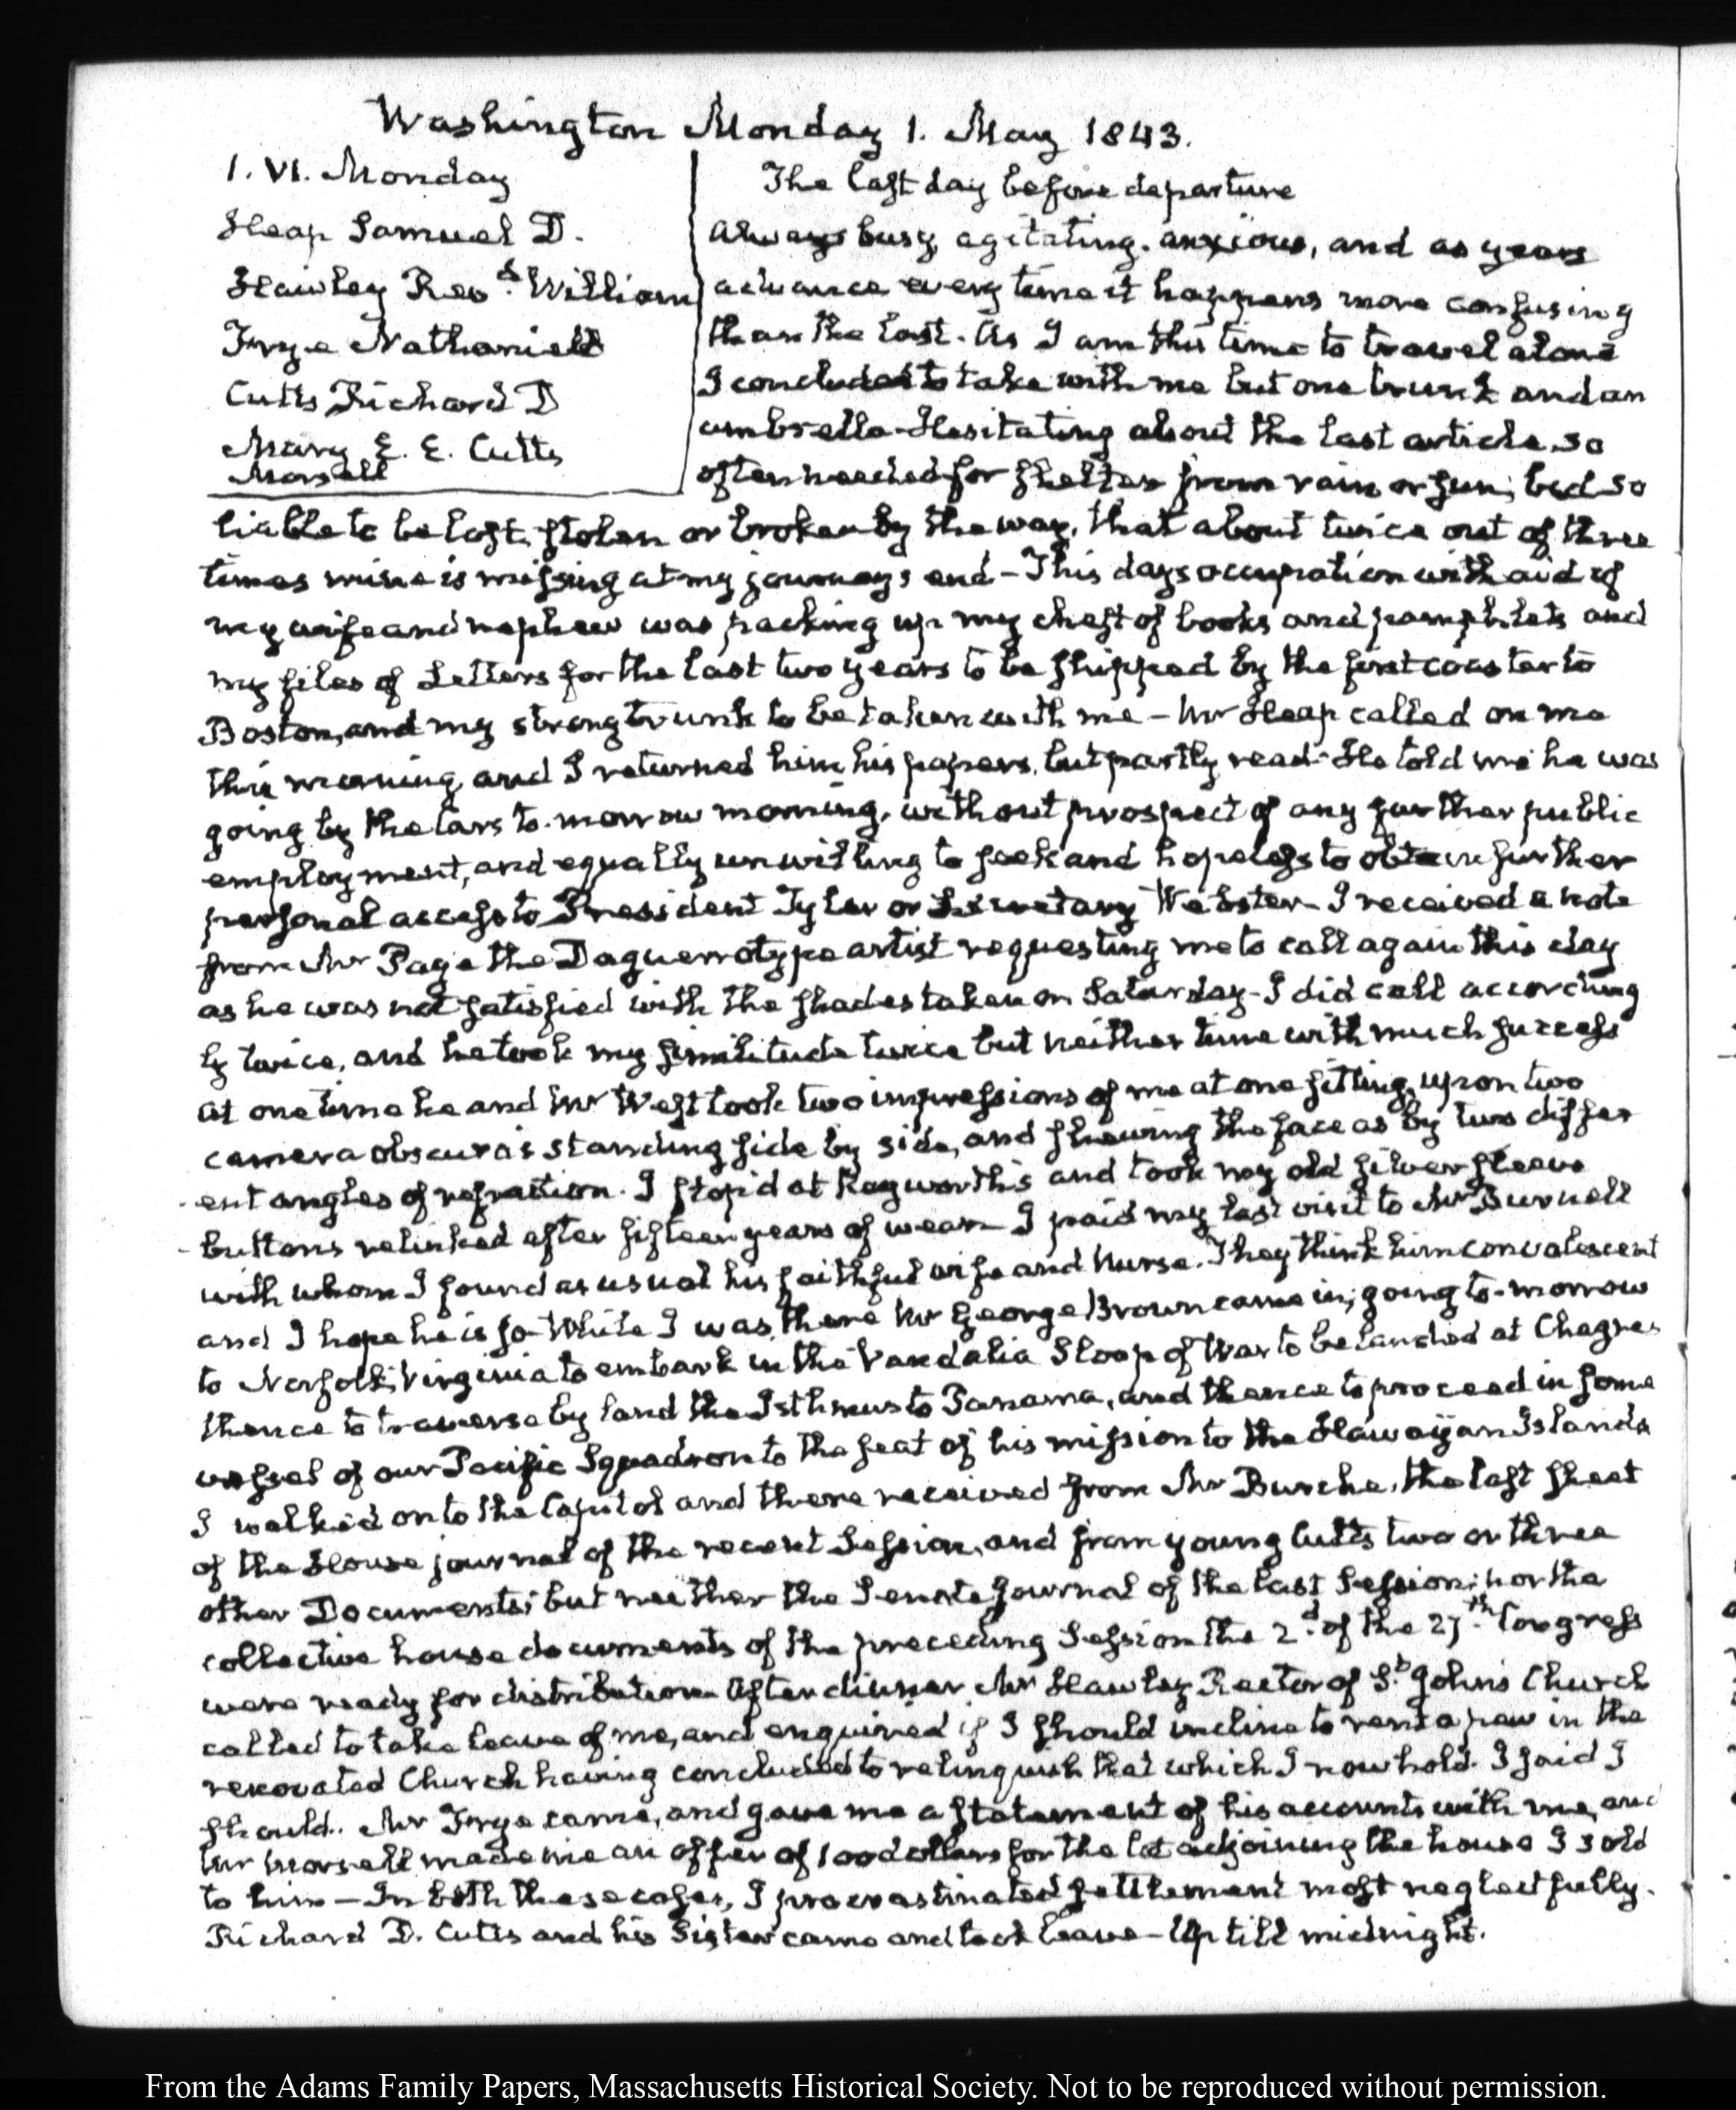 Washington Monday 1. May 1843.
1. VI. Monday
Heap Samuel D.
Hawley Revd. William
Frye Nathaniel
Cutts Richard D
Mary E. E. Cutts
Morsell
The last day before departure
always busy agitating, anxious, and as years
advance every time it happens more confusing
than the last. As I am this time to travel alone
I concluded to take with me but one trunk and an
umbrella - Hesitating about the last article, so
often needed for shelter from rain or sun; but so
liable to be lost, stolen or broken by the way, that about twice out of three
times mine is missing at my journey's end - This days occupation with aid of
my wife and nephew was packing up my chest of books and pamphlets and
my files of Letters for the last two years to be shipped by the first coaster to
Boston, and my strong trunk to be taken with me - Mr Heap called on me
this morning, and I returned him his papers, but partly read - He told me he was
going by the Cars to-morrow morning, without prospect of any further public
employment, and equally unwilling to seek and hopeless to obtain further
personal access to President Tyler or Secretary Webster - I received a note
from Mr Page the Daguerrotype artist requesting me to call again this day
as he was not satisfied with the shades taken on Saturday - I did call according
ly twice, and he took my similitude twice but neither time with much success
at one time he and Mr West took two impressions of me at one sitting, upon two
camera obscura's standing side by side, and shewing the face as by two differ
ent angles of refraction. I stop'd at Kayworth's and took my old silver sleeve
buttons relinked after fifteen years of wear - I paid my last visit to Mr Burnell
with whom I found as usual his faithful wife and Nurse. They think him convalescent
and I hope he is so - While I was there Mr George Brown came in; going to-morrow
to Norfolk, Virginia to embark in the Vandalia Sloop of War to be landed at Chagres
thence to traverse by land the Isthmus to Panama, and thence to proceed in some
vessel of our Pacific Squadron to the seat of his mission to the Hawaiian Islands
I walked on to the Capitol and there received from Mr Burche, the last sheet
of the House journal of the recent Session, and from young Cutts two or three
other Documents; but neither the Senate Journal of the last Session; nor the
collective house documents of the preceding Session the 2d. of the 27th. Congress
were ready for distribution. After dinner Mr Hawley Rector of St. John's Church
called to take leave of me, and enquired if I should incline to rent a pew in the
renovated Church having concluded to relinquish that which I now hold. I said I
should. Mr Frye came, and gave me a statement of his accounts with me, and
Mr Morsell made me an offer of 100 dollars for the lot adjoining the house I sold
to him - In both these cases, I procrastinated settlement most neglectfully.
Richard D. Cutts and his Sister came and took leave - Up till midnight.
From the Adams Family Papers, Massachusetts Historical Society. Not to be reproduced without permission.